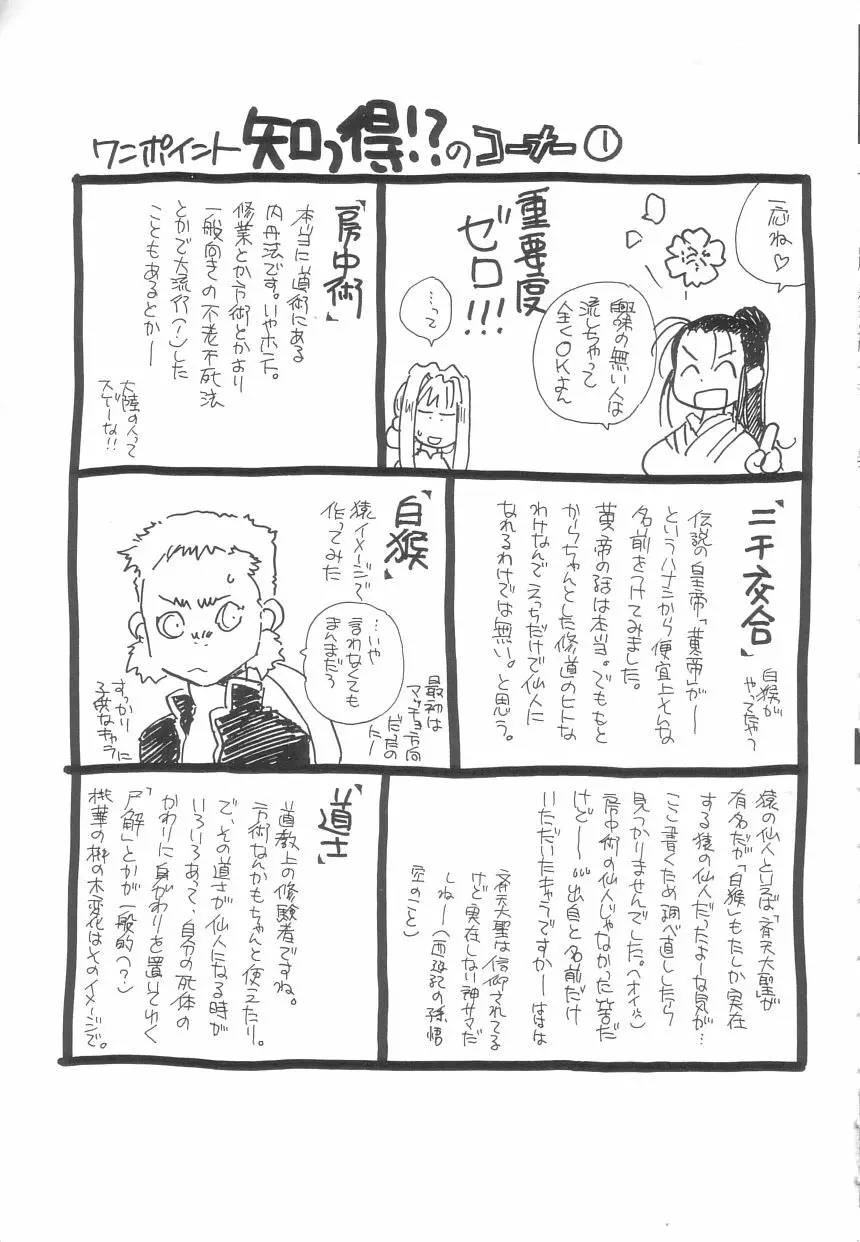 ワンポイント知っ得!?のコーナー①
一応ね♡
重要度
ゼロ!!!
興味の無い人は
流しちゃって
全くOKよん
…って
「房中術」
本当に道術にある
内丹法です。いやホンテ。
修業とか方術とかより
一般向きの不老不死法
とかで大流行(?)した
こともあるとかー
大陸の人って
スゲーな!!
「二千交合」
伝説の皇帝「黄帝」が―
というハナシから便宜上そんな
名前をつけてみました。
黄帝の話は本当。でももと
からちゃんとした修道のヒトな
わけなんでえっちだけで仙人に
なれるわけでは無い。と思う。
白猴が
やってたやつ
「白猴」
猿イメージで
作ってみた
…いや
言わなくても
まんまだろ
最初は
マッチョ方向
だったの
にー
すっかり
子供なキャラに
猿の仙人といえば「斉天大聖」が
有名だが「白猴」もたしか実在
する猿の仙人だったよーな気が…
ここ書くため調べ直ししたら
見っかりませんでした。(オイ)
房中術の仙人じゃなかった筈だ
けどー…出自と名前だけ
いただいたキャラですかーははは
斉天大聖は信仰されてる
けど実在しない神サマだ
しねー(西遊記の孫悟
空のこと)
「道士」
道教上の修験者ですね。
方術なんかもちゃんと使えたり。
で、その道士が仙人になる時が
いろいろあって、自分の死体の
かわりに身がわりを置いてゆく
「尸解」とかが一般的(?)
桃華の桃の木変化はそのイメージで。